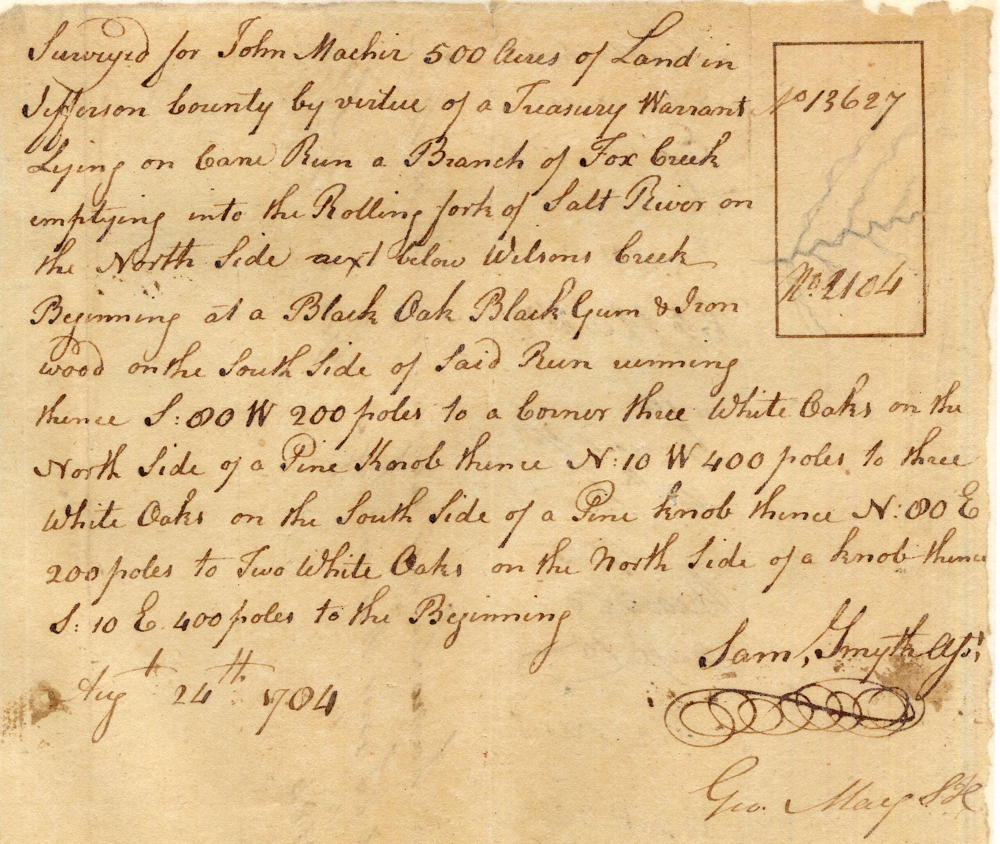 Surveyd for John Machir 500 Acres of Land in
Jefferson County by virtue of a Treasury Warrant No 13627
Lying on Cane Run a Branch of Fox Creek
emptying into the Rolling fork of Salt River on
the North Side next below Wilsons Creek
No. 2104
Beginning at a Black Oak Black Gum & Iron
wood on the South Side of Said Run running
thence S: 80 W 200 poles to a Corner three White Oaks on the
North Side of a Pine Knob thence N: 10 W 400 poles to three
White Oaks on the South Side of a Pine knob thence N: 80 E
200 poles to Two White Oaks on the North Side of a knob thence
S: 10 E. 400 poles to the Beginning
Sam, Smyth Ast
Augt 24th 1784
Geo. May